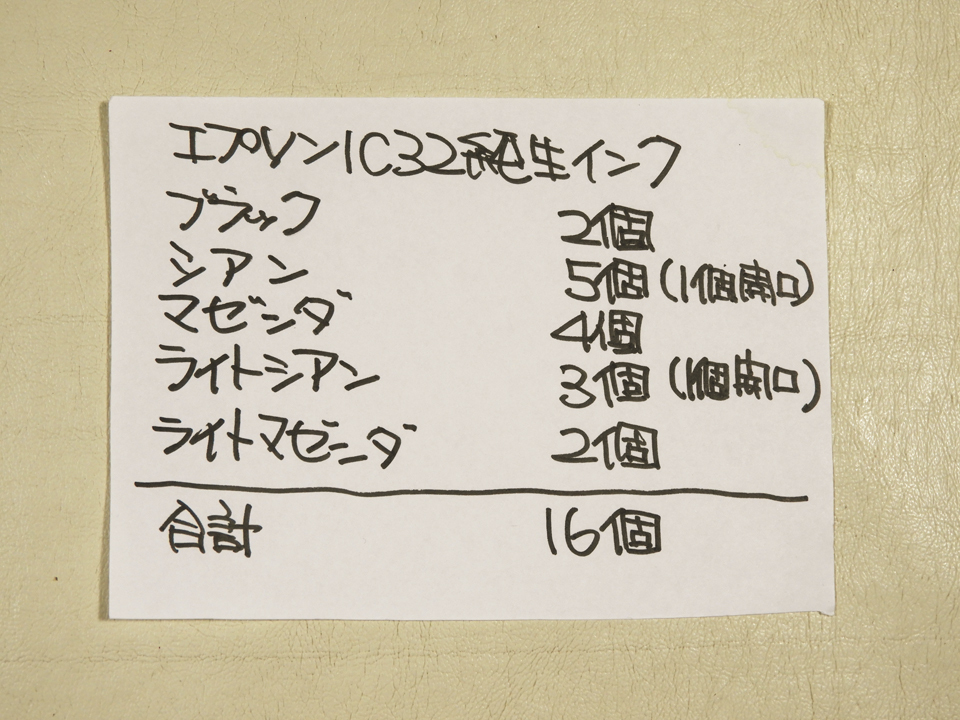 エプソンIC32純生インク
ブラック 2個
シアン 5個(1個開口)
マゼンダ 4個
ライトシアン 3個(1個開口)
ライトマゼンダ 2個
合計 16個